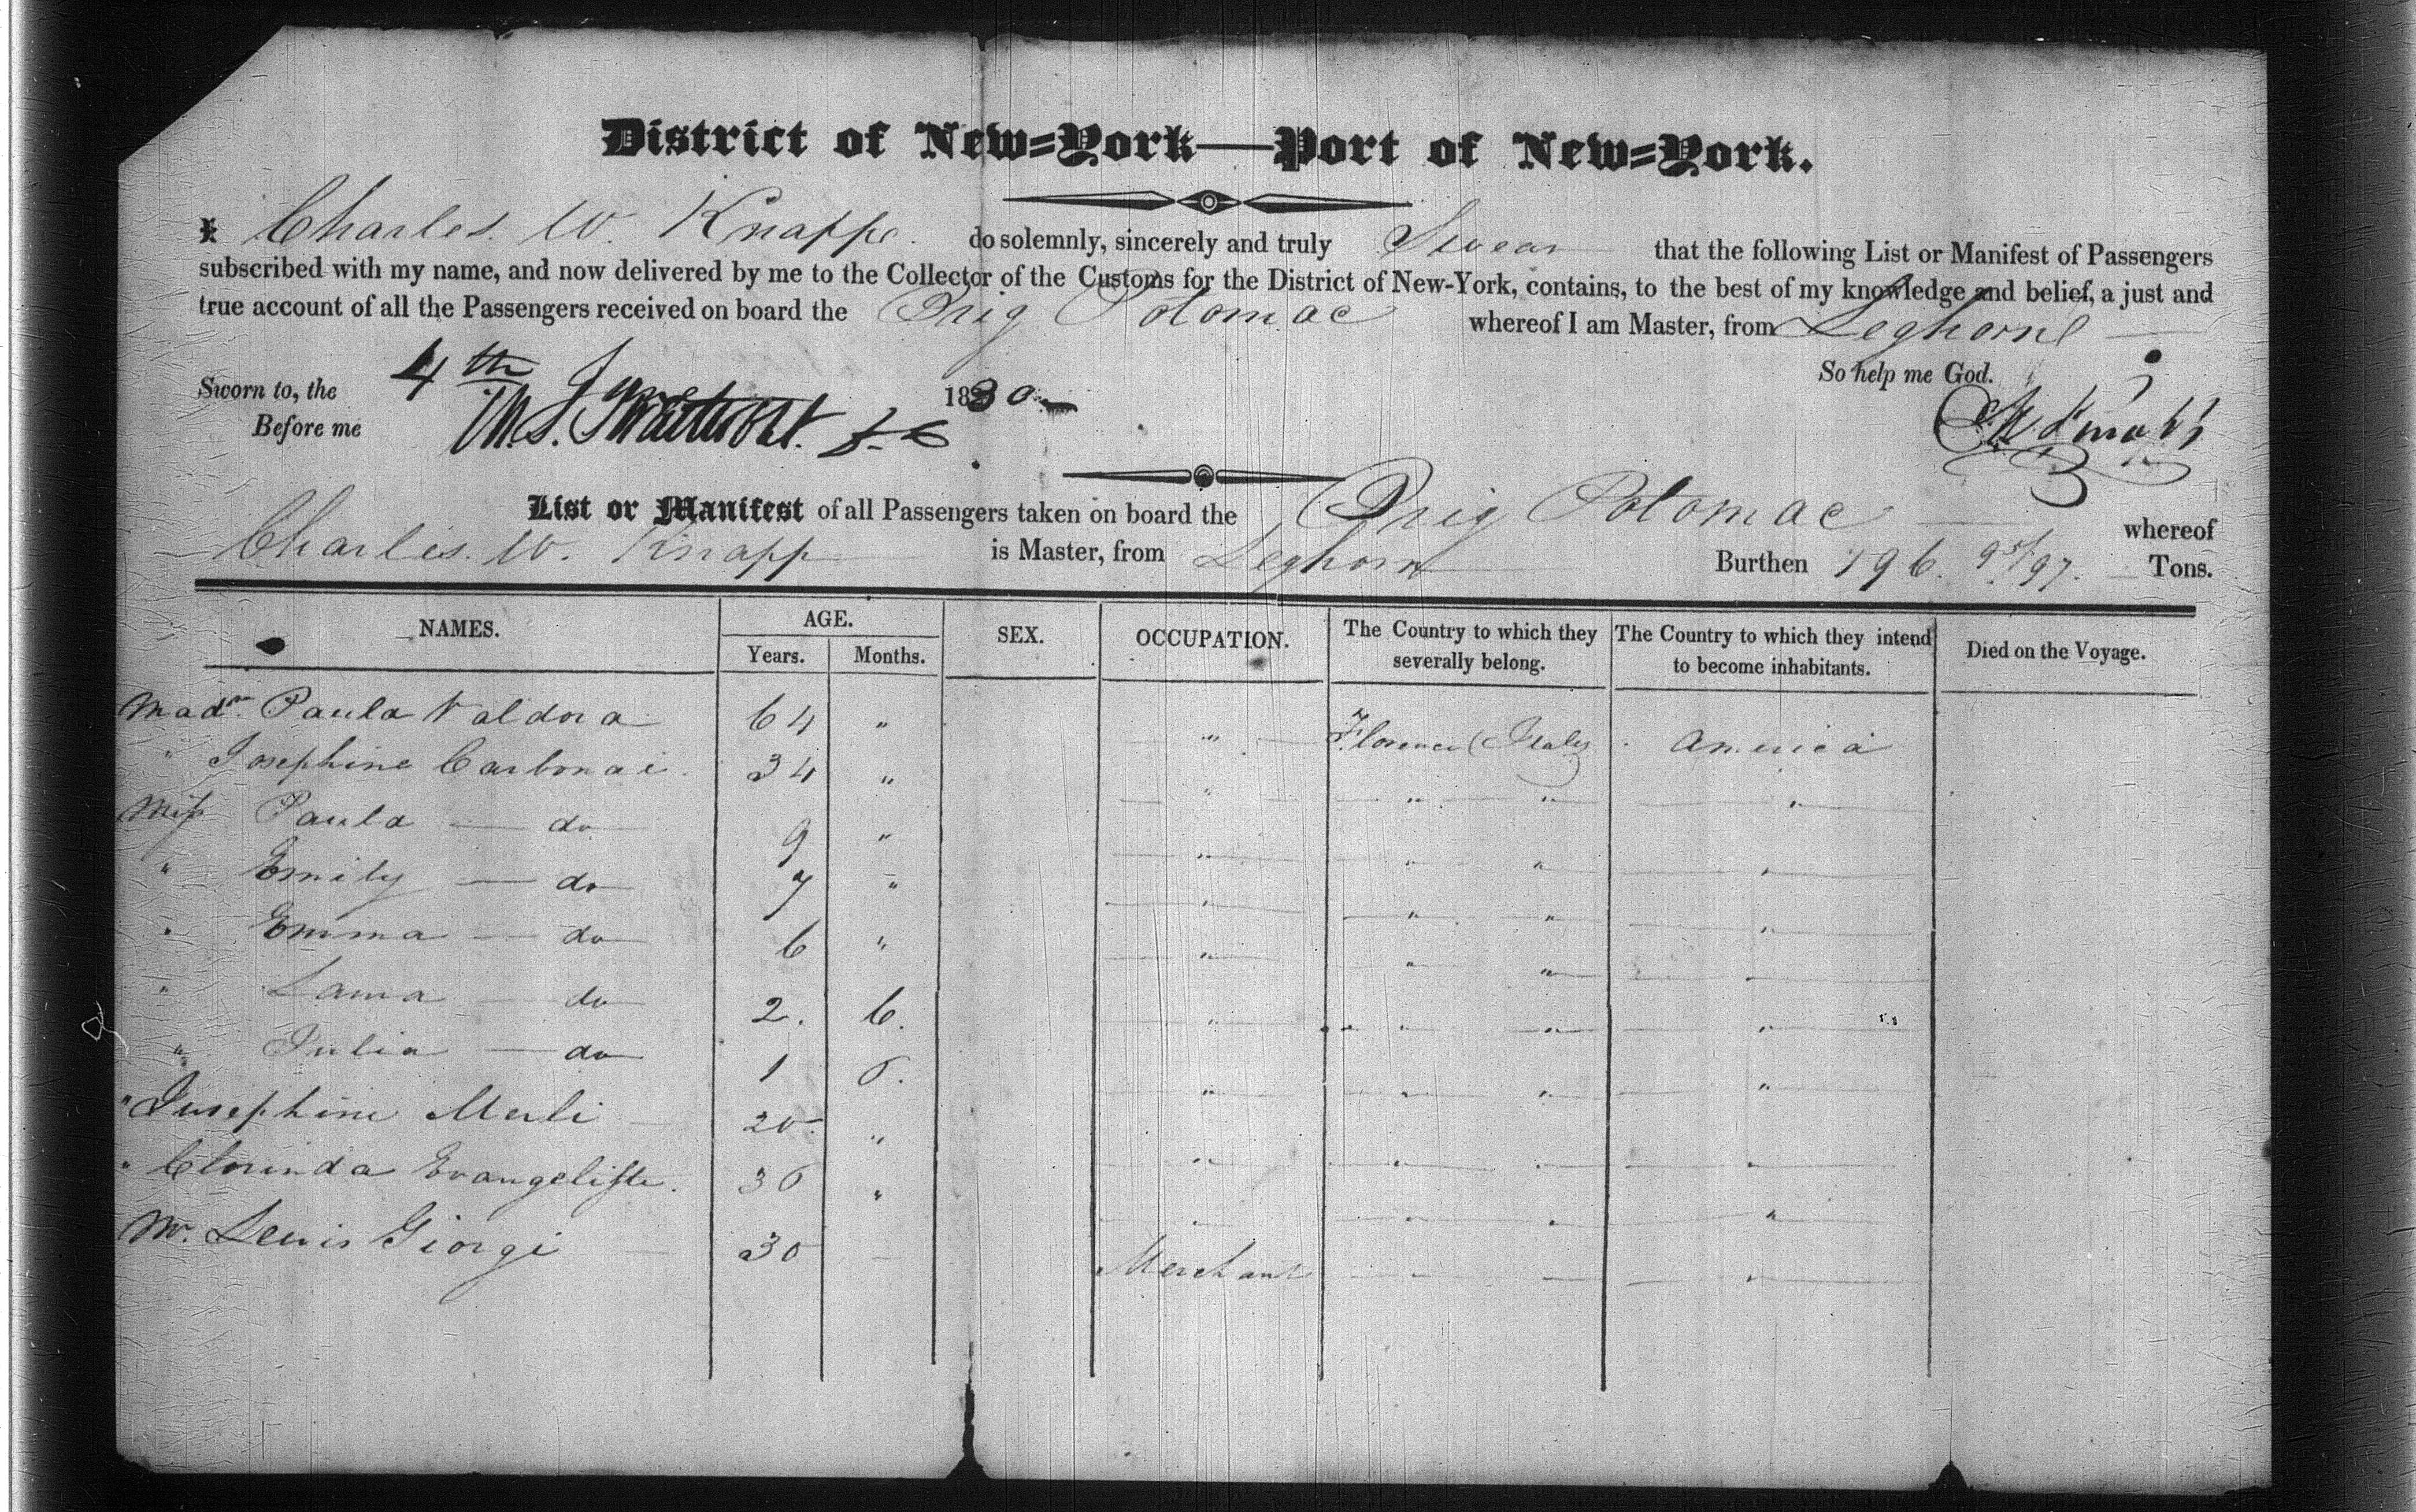 District of New=York—Port of New=York.
I Charles. W. Knapp do solemnly, sincerely and truly Swear that the following List or Manifest of Passengers
subscribed with my name, and now delivered by me to the Collector of the Customs for the District of New-York, contains, to the best of my knowledge and belief, a just and
true account of all the Passengers received on board the Brig Potomac whereof I am Master, from Leghorn
So help me God.
Sworn to, the 4th June 1830
Before me
List or Manifest of all Passengers taken on board the Brig Potomac whereof
Charles. W. Knapp is Master, from Leghorn Burthen 196. 95/97. Tons.
NAMES. AGE. SEX. OCCUPATION. The Country to which they severally belong. The Country to which they intend to become inhabitants. Died on the Voyage.
Years. Months.
Madm Paula Valdora 64 " " Florence (Italy America
" Josephine Carbonai. 34 " " " " "
Miss Paula — do 9 " " " " "
" Emily — do 7 " " " " "
" Emma — do 6 " " " " "
" Laura — do 2. 6. " " " "
" Julia — do 1 6. " " " "
" Josephine Merli 20 " " " " "
" Clorinda Evangeliste. 30 " " " " "
Mr. Lewis Giorgi 30 — Merchant " " "